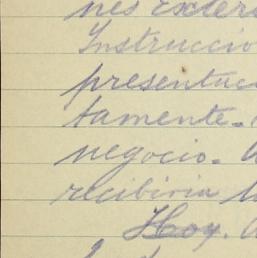 nes Exter
Instruccio
presentac
tamente. 
negocio. 
recibiria l
Hoy.